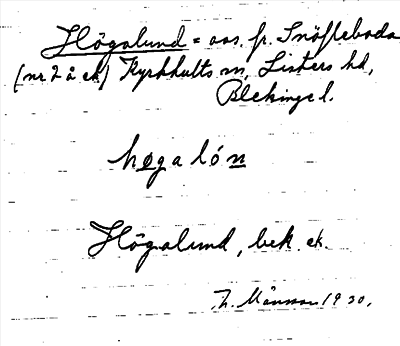 Högalund = avs. fr. Snöfleboda
(nr 2 å ek) Kyrkhults sn, Listers hd,
Blekinge l.
høgalón
Högalund, bek. ek.
Månsson 1930.